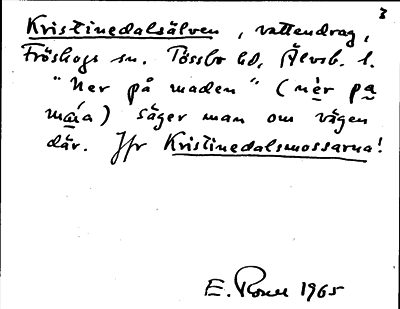 3
Kristinedalsälven, vattendrag,
Fröskogs sn. Tössbo hd, Älvsb. l.
"Ner på maden" (nèr pa
maía) säger man om vägen
där. Jfr Kristinedalsmossarna!
E. 1965